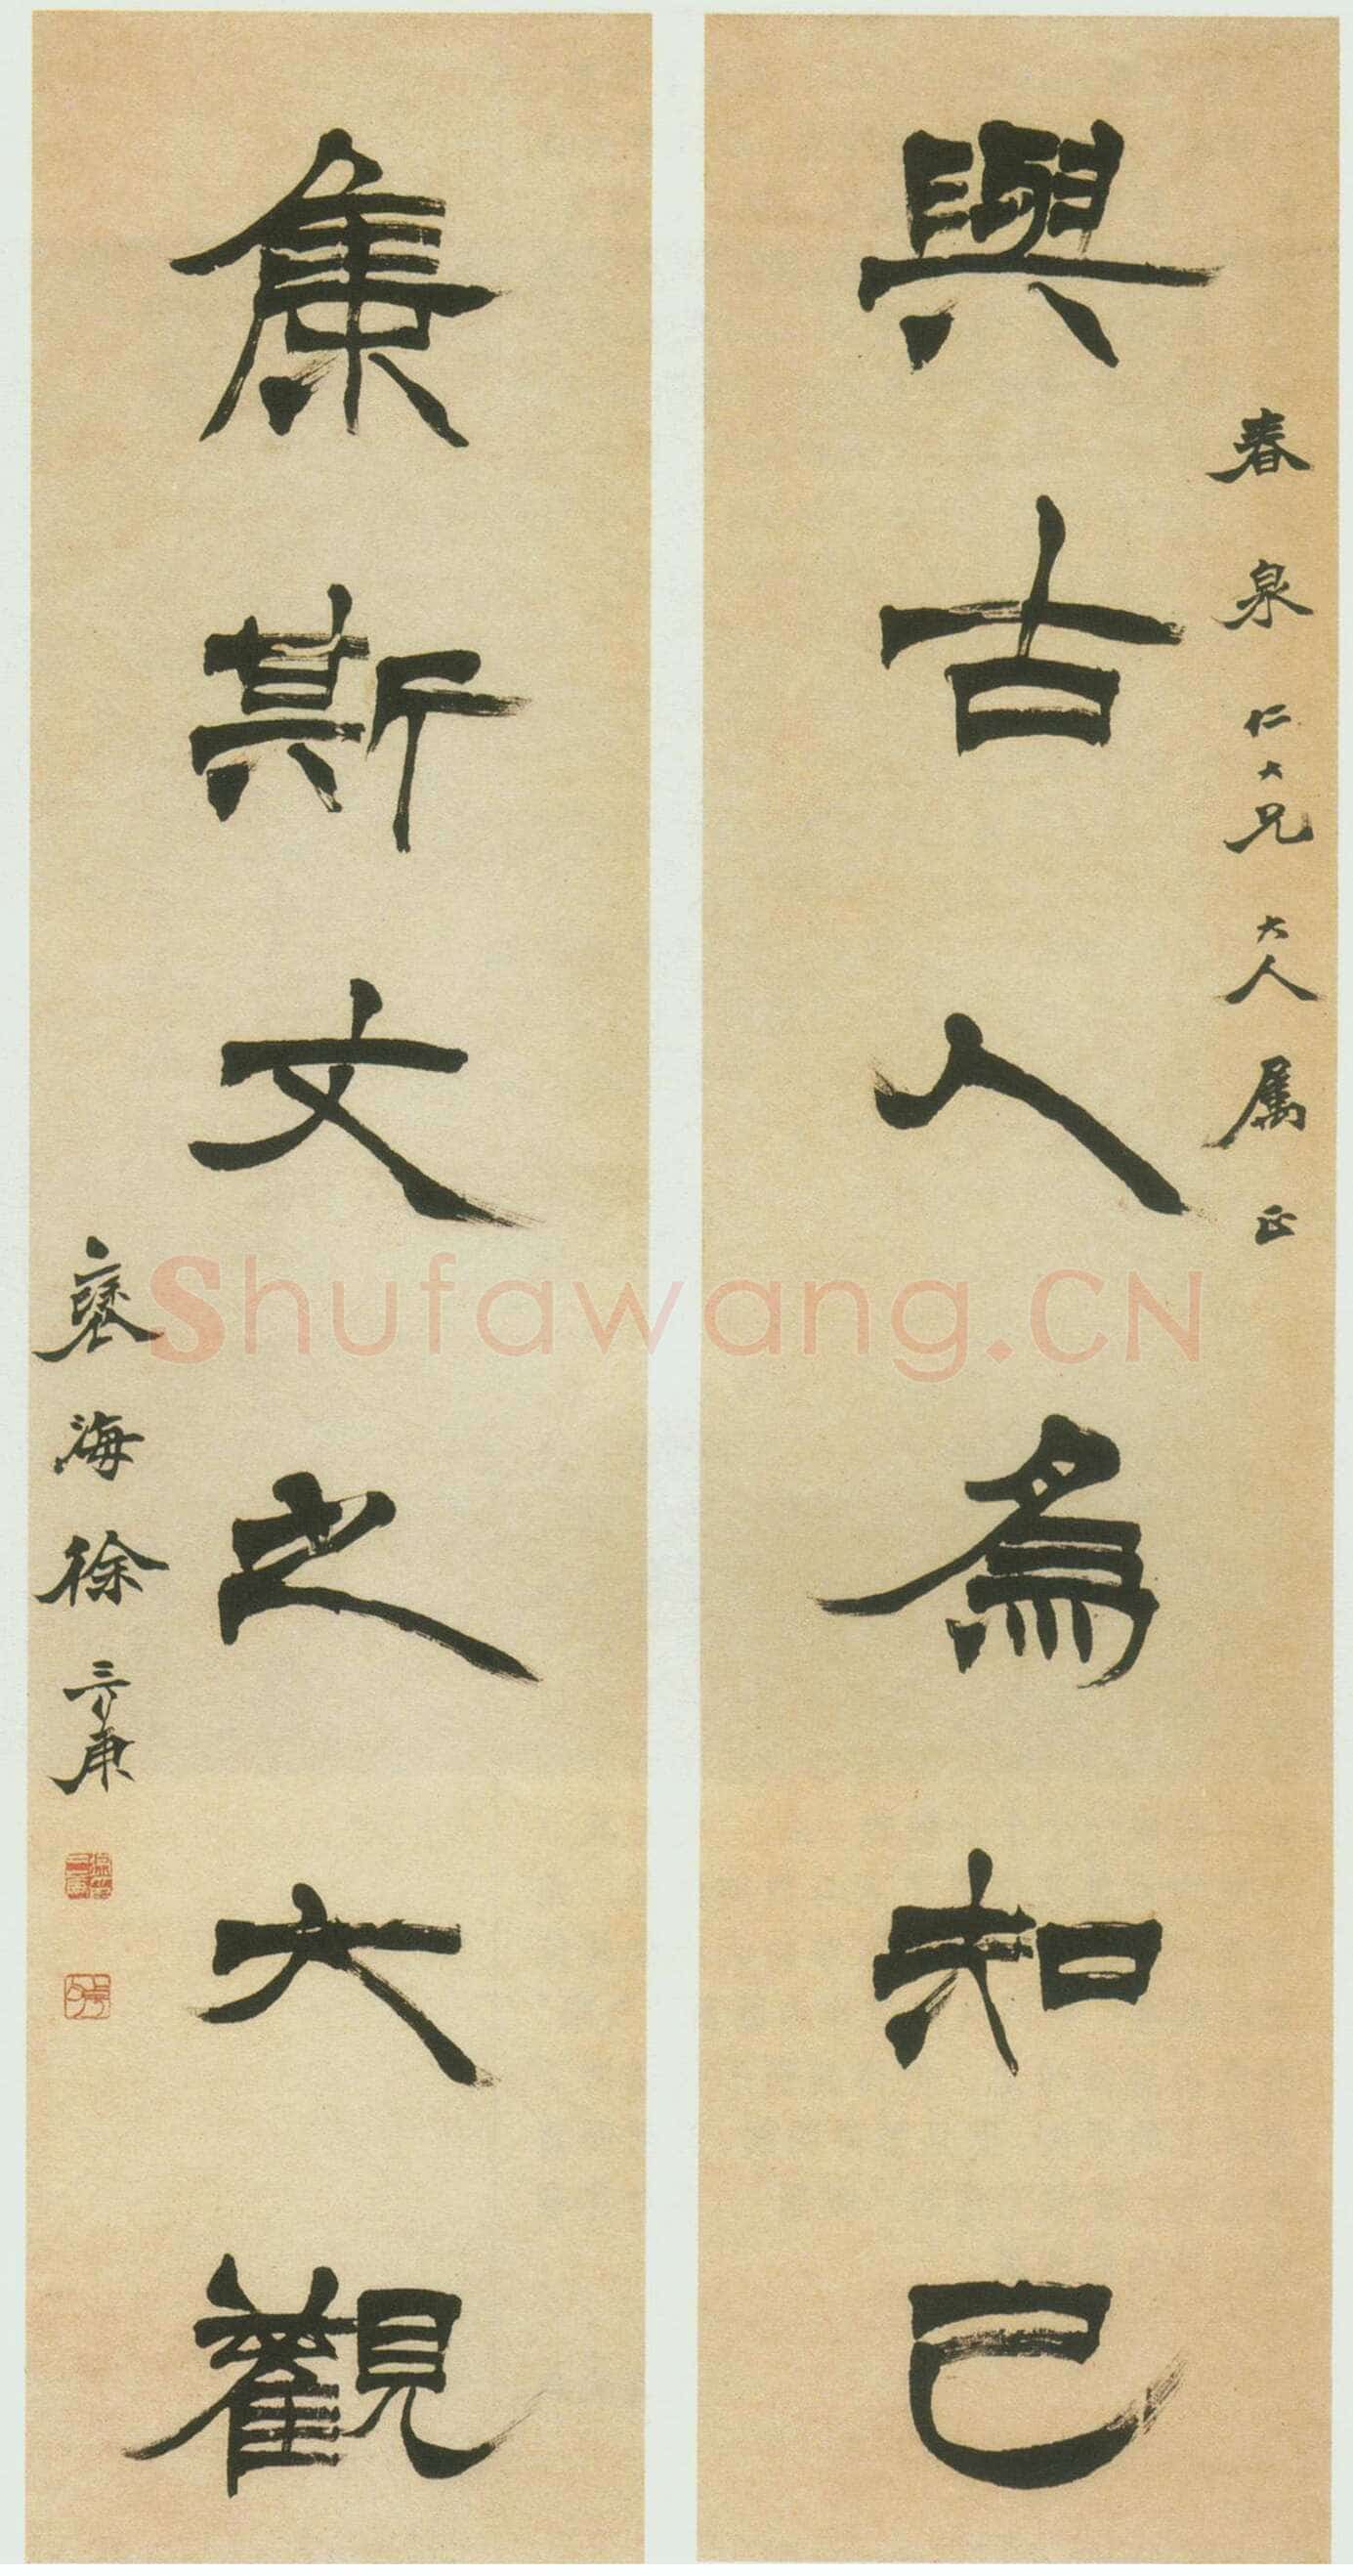 春泉仁大兄大人属正
與古人為知己
集斯文之大觀
褎海徐三庚
Shufawang.CN